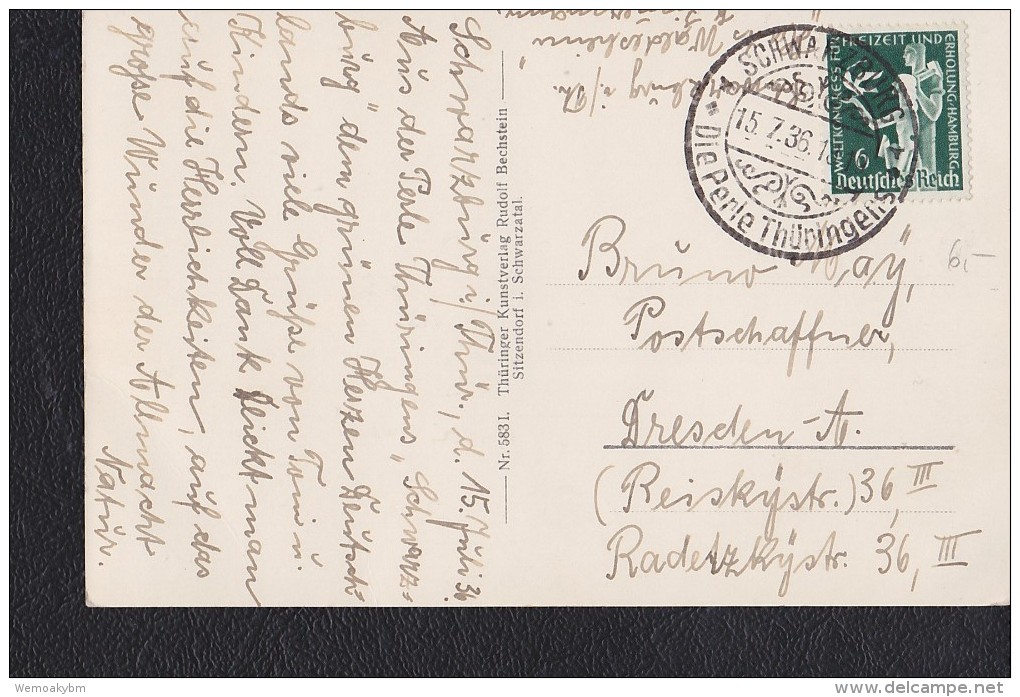 Schwarzburg i/Thür., d. 15. Juli 36.
Aus der Perle Thüringens „Schwarz-
burg" dem grünen Herzen Deutsch-
lands viele Grüße von Toni u.
Kindern. Voll Dank blickt man
auf die Herrlichkeiten, auf das
große Wunder der Allmacht
Natur.
Waldesheim
Schwarzburg i/Th.
Nr. 5831. Thüringer Kunstverlag Rudolf Bechstein
Sitzendorf i. Schwarzatal.
SCHWARZBURG
15.7.36.
Die Perle Thüringens
WELTKONGRESS FÜR FREIZEIT UND ERHOLUNG·HAMBURG
6
Deutsches Reich
Bruno May,
Postschaffner,
Dresden-A.
(Reiskystr.) 36, III
Radetzkystr. 36, III
6,-
Wemoakybm
www.delcampe.net